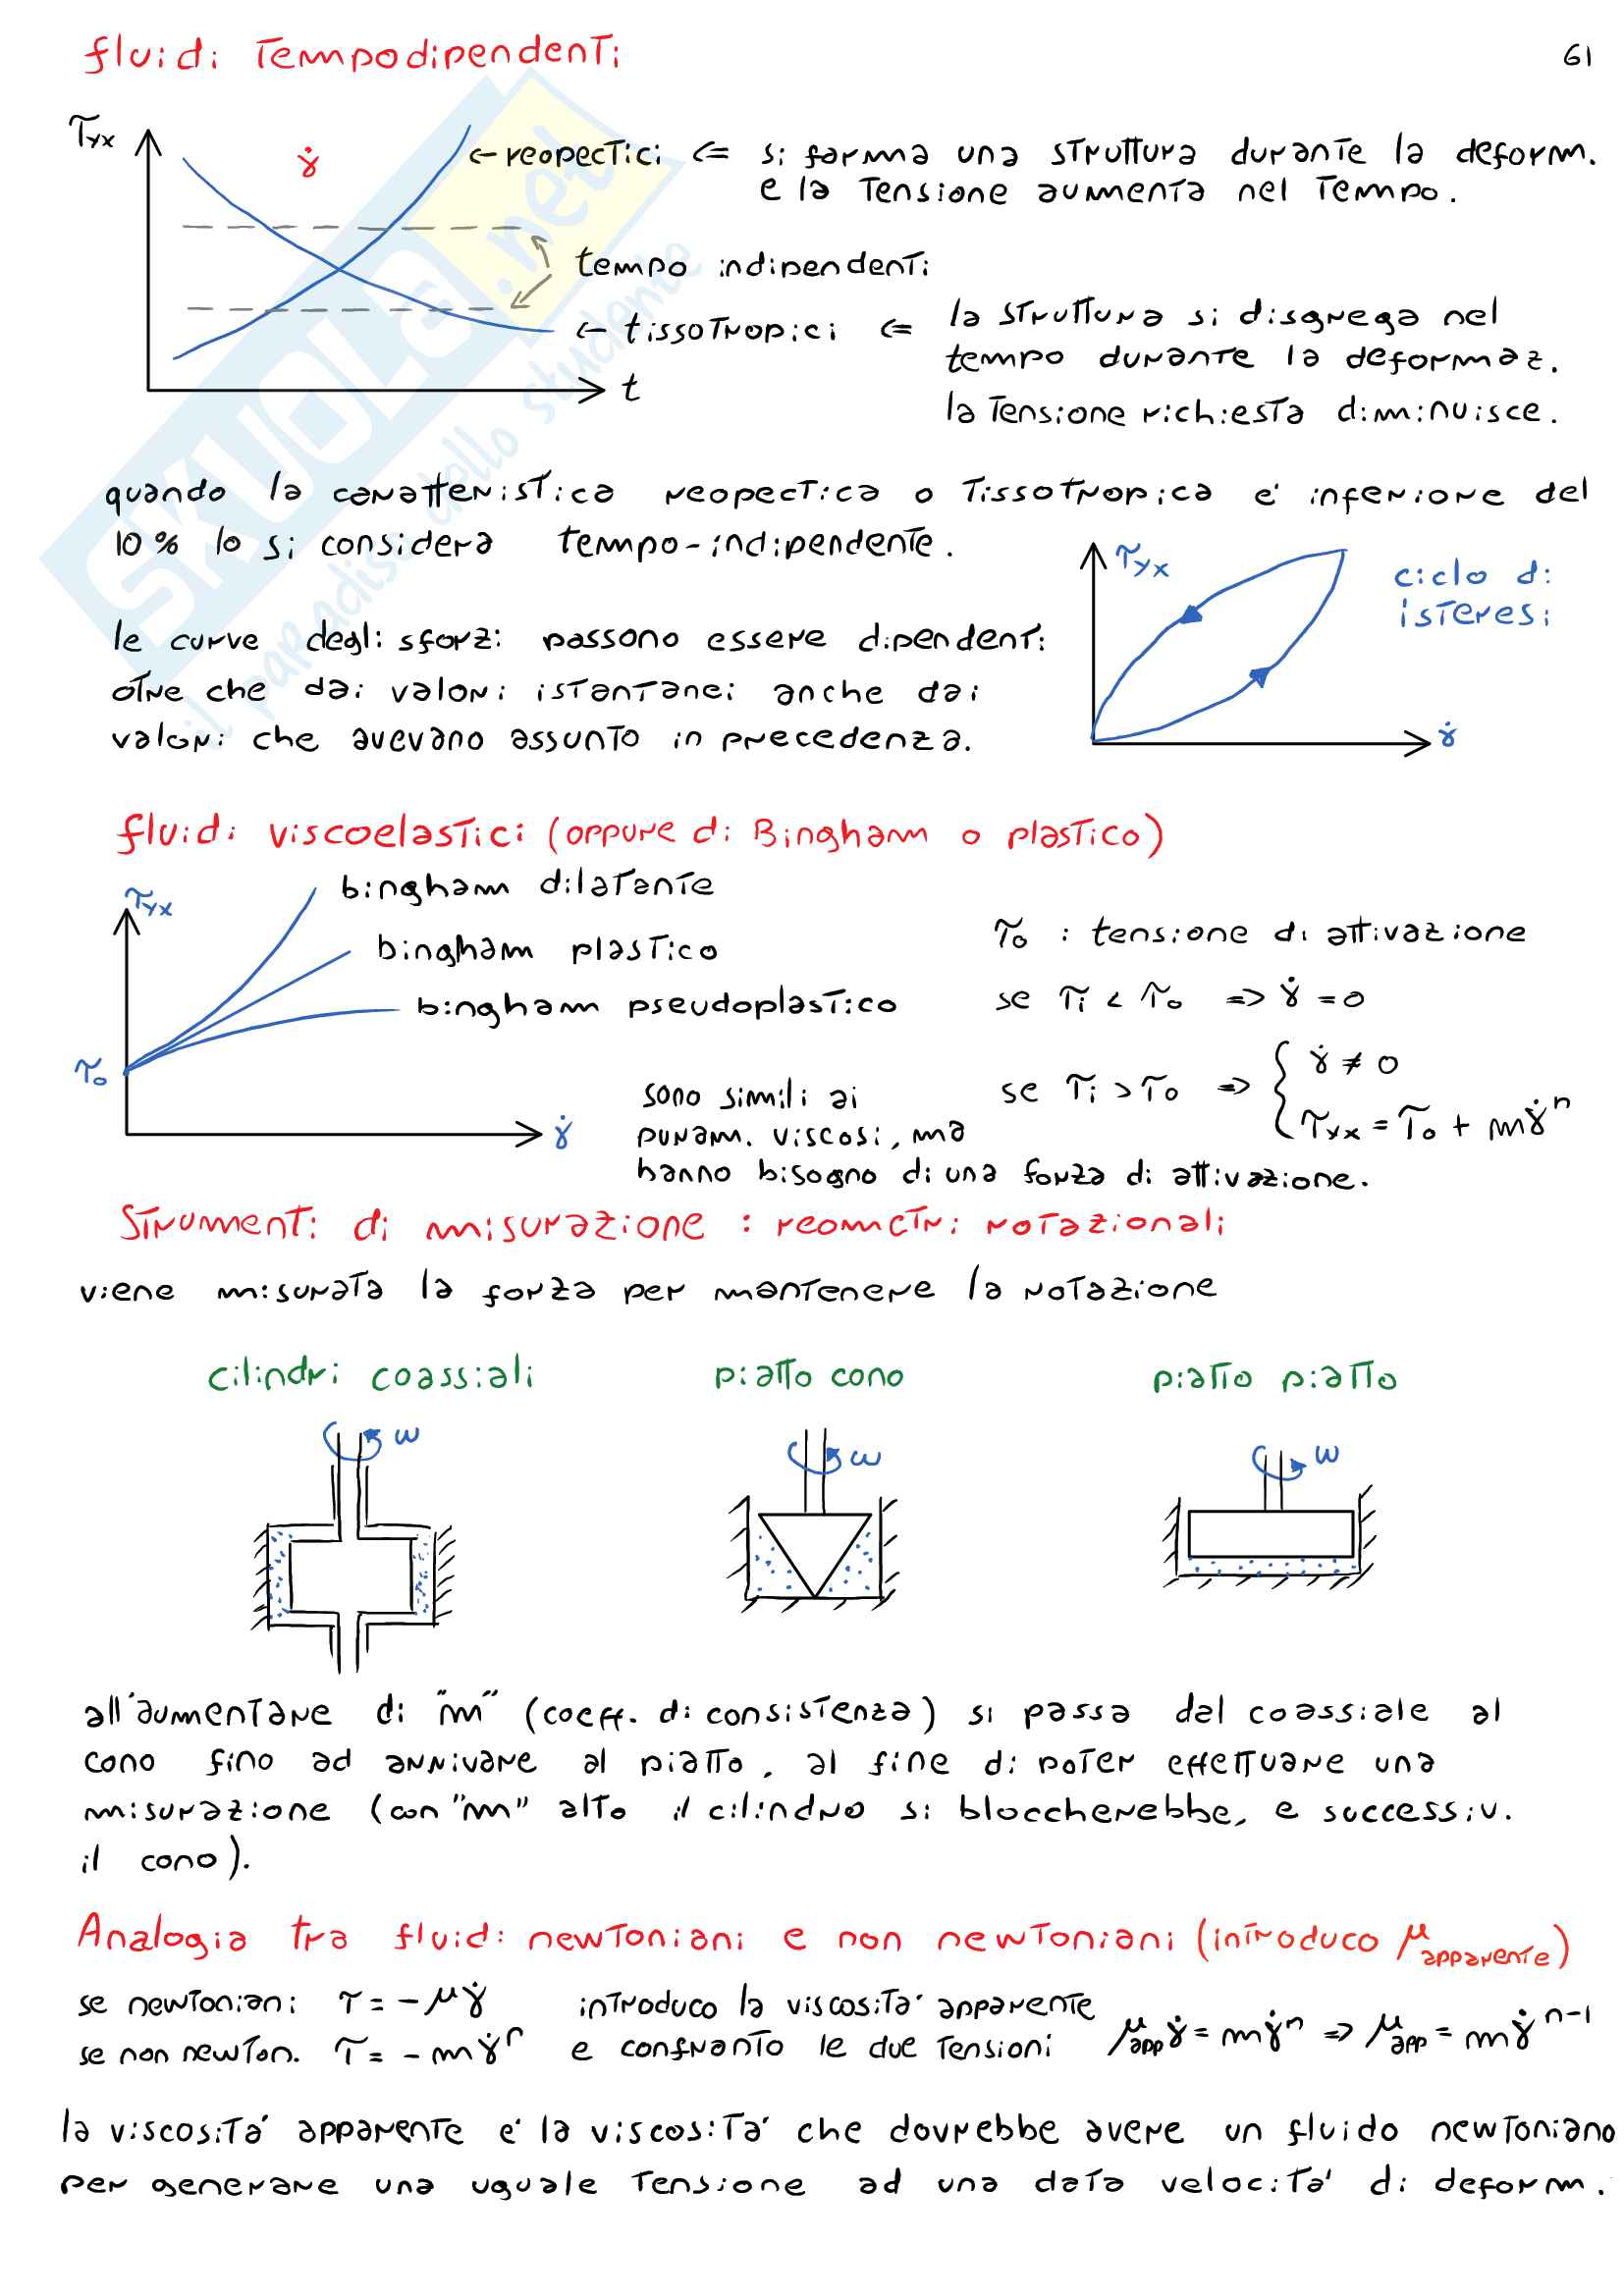 fluidi tempodipendenti
61
τyx
γ̇
← reopectici <= si forma una struttura durante la deform.
e la tensione aumenta nel tempo.
tempo indipendenti
← tissotropici <= la struttura si disgrega nel
tempo durante la deformaz.
la tensione richiesta diminuisce.
t
SKUOLA.net
il paradiso dello studente
quando la caratteristica reopectica o tissotropica e' inferiore del
10% lo si considera tempo-indipendente.
τyx
ciclo di
isteresi
γ̇
le curve degli sforzi possono essere dipendenti
otre che dai valori istantanei anche dai
valori che avevano assunto in precedenza.
fluidi viscoelastici (oppure di Bingham o plastico)
τyx
bingham dilatante
bingham plastico
bingham pseudoplastico
τo
γ̇
τo : tensione di attivazione
se τi < τo => γ̇ = 0
se τi > τo => { γ̇ ≠ 0
τyx = τo + mγ̇ⁿ
sono simili ai
puram. viscosi, ma
hanno bisogno di una forza di attivazione.
Strumenti di misurazione : reometri rotazionali
viene misurata la forza per mantenere la rotazione
cilindri coassiali
piatto cono
piatto piatto
ω
ω
ω
all'aumentare di "m" (coeff. di consistenza) si passa dal coassiale al
cono fino ad arrivare al piatto, al fine di poter effettuare una
misurazione (con "m" alto il cilindro si bloccherebbe, e successiv.
il cono).
Analogia tra fluidi newtoniani e non newtoniani (introduco μapparente)
se newtoniani τ = -μγ̇ introduco la viscosita' apparente
se non newton. τ = -mγ̇ⁿ e confronto le due tensioni μapp γ̇ = mγ̇ⁿ => μapp = mγ̇ⁿ⁻¹
la viscosita' apparente e' la viscosita' che dovrebbe avere un fluido newtoniano
per generare una uguale tensione ad una data velocita' di deform.